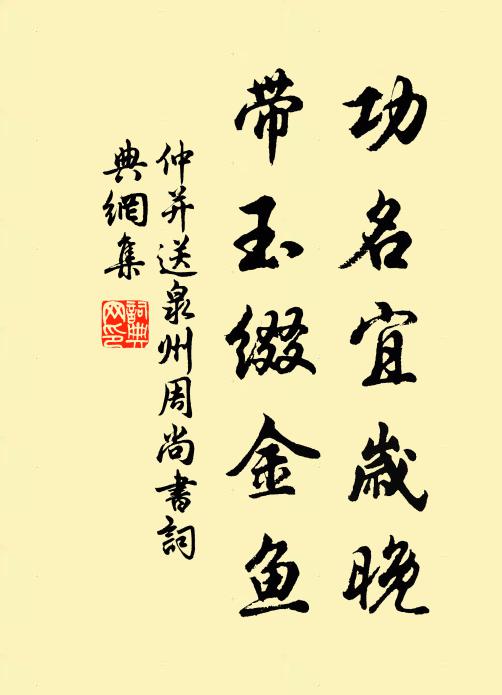 功名宜歲晚
带玉缀金鱼
仲并送泉州周尚書詞
典網集
詞典
网印